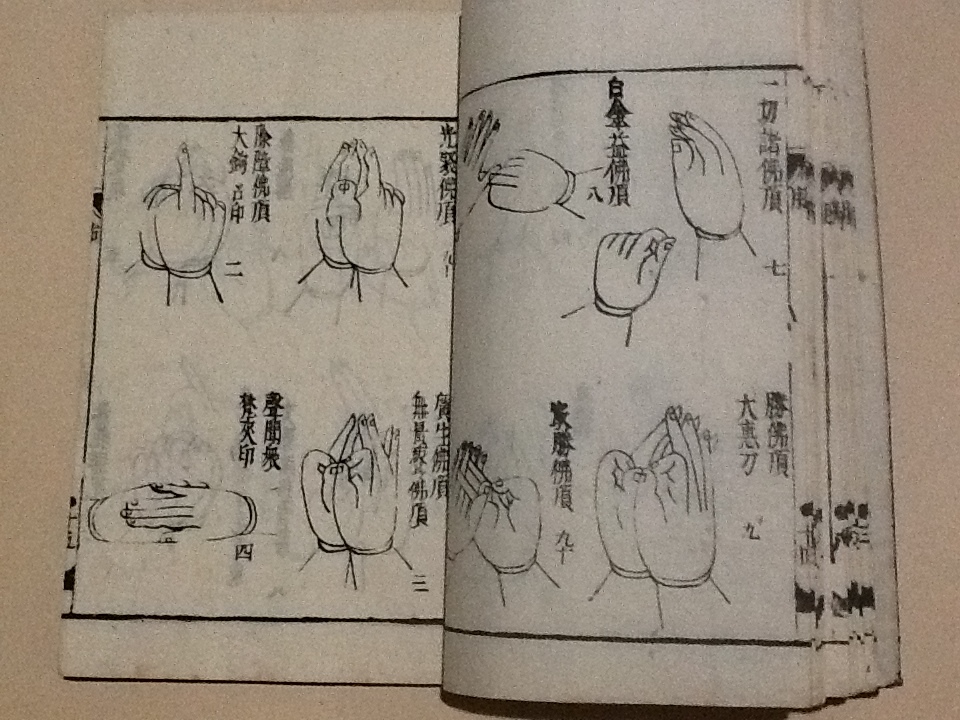 一切諸佛頂
七
白傘蓋佛頂
八
勝佛頂
大惠刀
九
最勝佛頂
九十
光聚佛頂
除障佛頂
大鉤召印
二
廣生佛頂
佛頂
三
聲聞衆
梵夾印
四